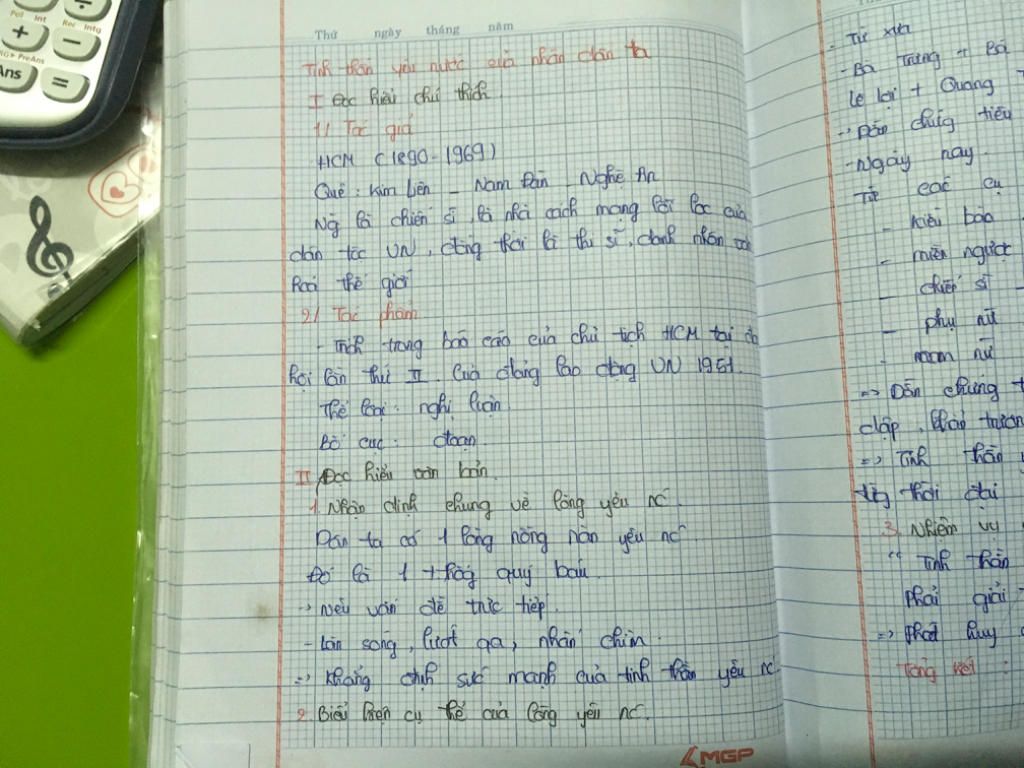 Pol Int Rec Intg
+ -
PreAns
Ans =
Thứ ngày tháng năm
Tinh thần yêu nước của nhân dân ta
I Đọc hiểu chú thích
1/ Tác giả
HCM (1890-1969)
Quê: Kim Liên - Nam Đàn - Nghệ An
Ng là chiến sĩ, là nhà cách mạng lỗi lạc của
dân tộc VN, đồng thời là thi sĩ, danh nhân văn
hoá thế giới
2/ Tác phẩm
- Trích trong báo cáo của chủ tịch HCM tại
hội lần thứ II. Của đảng lao động VN 1951.
Thể loại: nghị luận.
Bố cục: đoạn
II Đọc hiểu văn bản.
1. Nhận định chung về lòng yêu nc.
Dân ta có 1 lòng nồng nàn yêu nc
Đó là 1 + thống quý báu.
-> Nêu vấn đề trực tiếp.
- Làn sóng, lướt qa, nhấn chìm.
=> Khẳng định sức mạnh của tinh thần yêu nc
2. Biểu hiện cụ thể của lòng yêu nc.
MGP
- Từ xưa
- Bà Trưng + Bà
Lê Lợi + Quang
-> Dẫn chứng tiêu
- Ngày nay.
Từ các cụ
- kiều bào
- miền ngược
- chiến sĩ
- phụ nữ
- nam nữ
=> Dẫn chứng
=> Tinh thần
từng thời đại
3. Nhiệm vụ
" Tinh thần
Phải giải
=> Phát huy
Tổng kết: